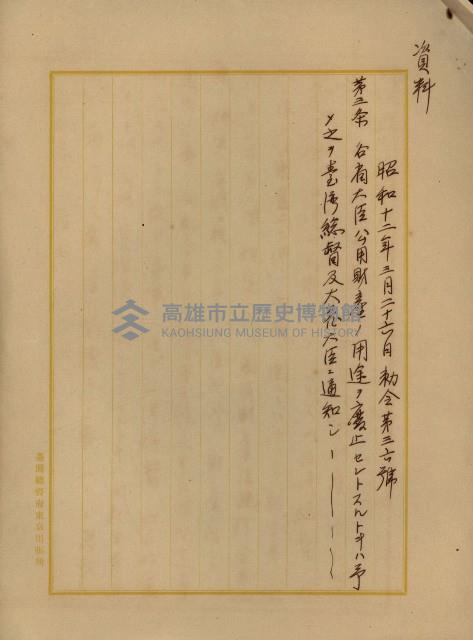 資料
昭和十二年三月二十六日勅令第三六號
第三条 各省大臣公用財産ノ用途ヲ廃止セントスルトキハ予
メ之ヲ臺湾総督及大蔵大臣ニ通知シ
臺灣總督府東京出張所
高雄市立歷史博物館
KAOHSIUNG MUSEUM OF HISTORY